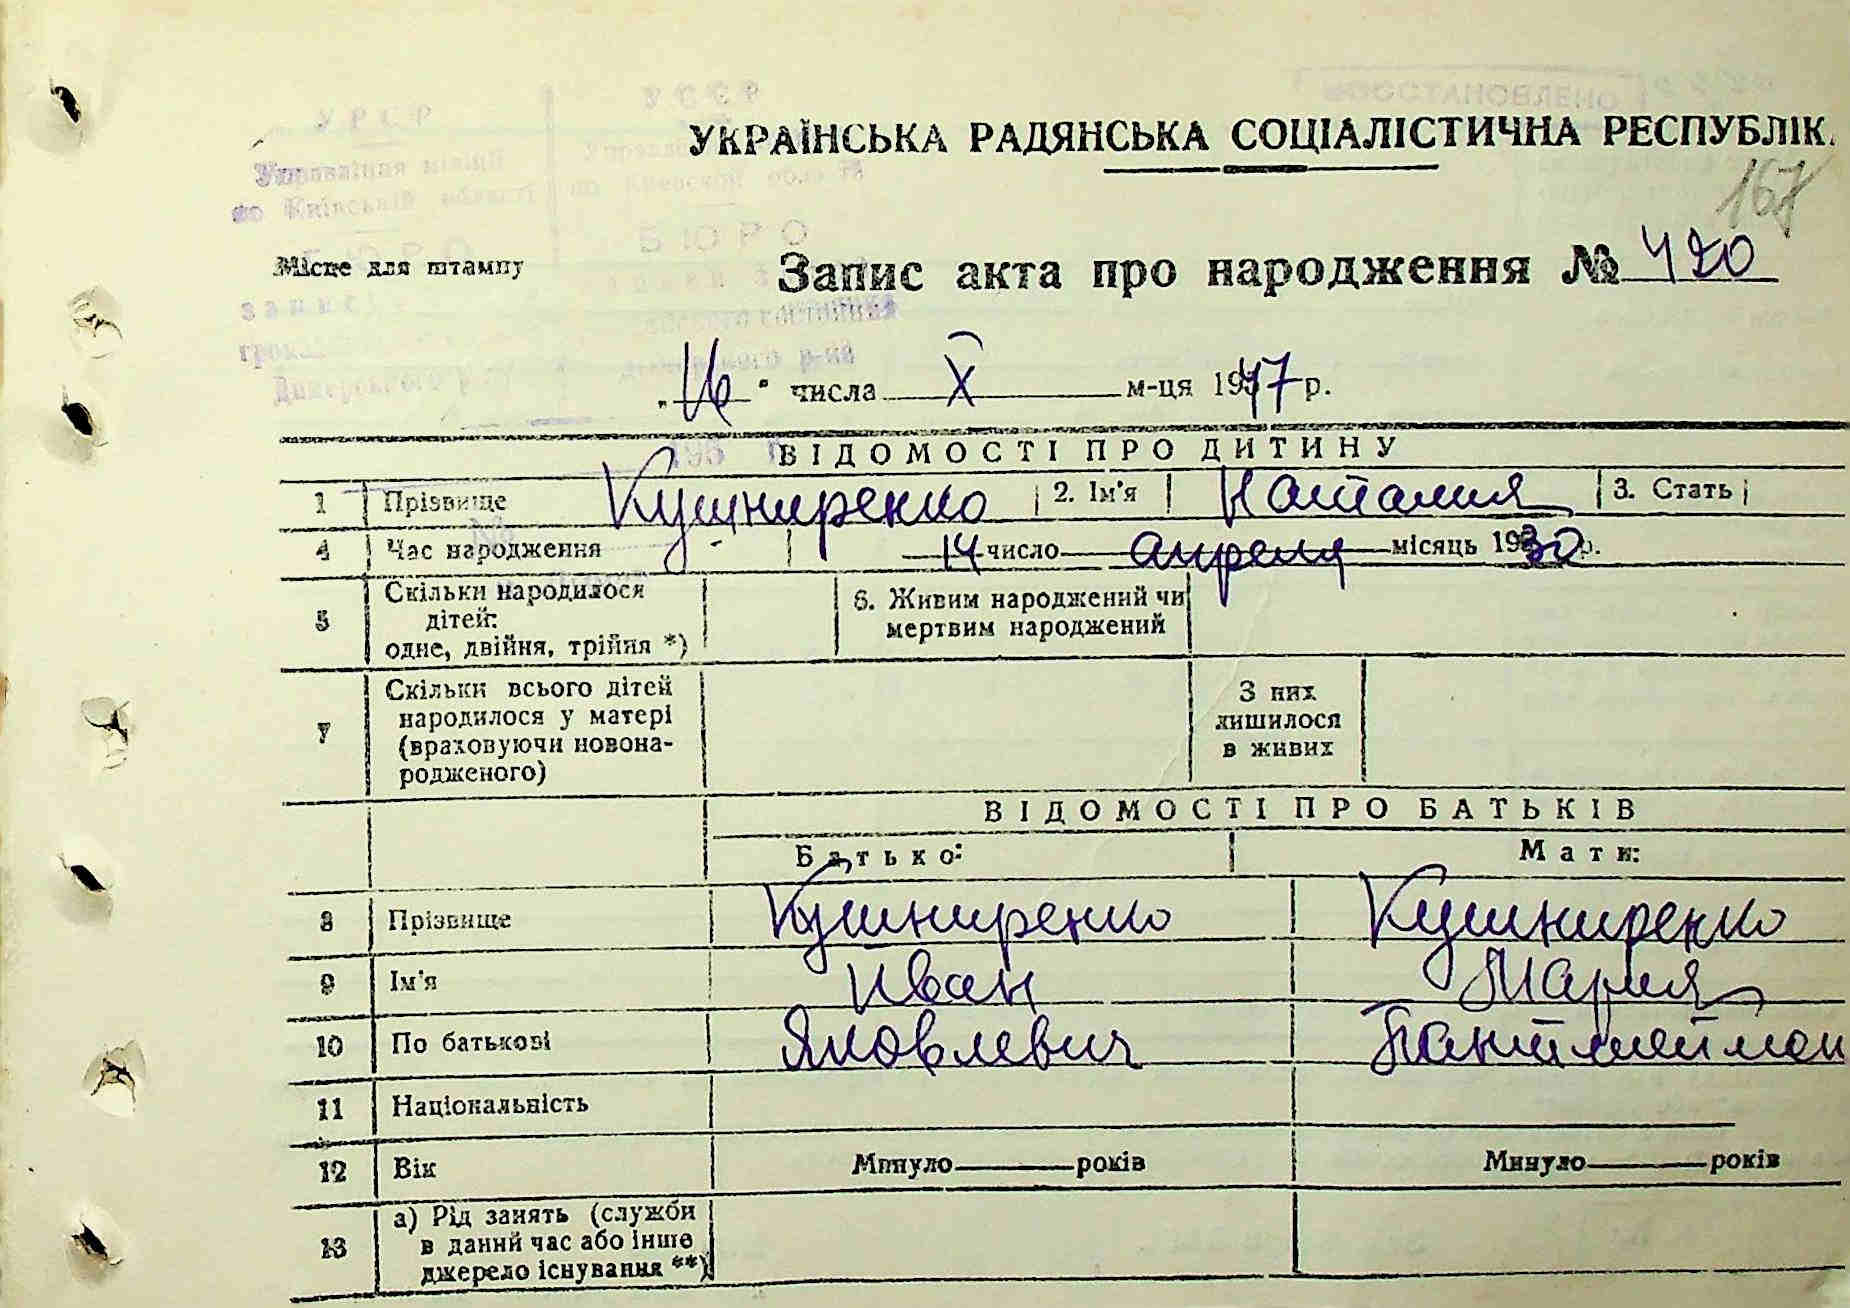 УКРАЇНСЬКА РАДЯНСЬКА СОЦІАЛІСТИЧНА РЕСПУБЛІК
167
Місце для штампу
Запис акта про народження № 420
„16“ числа X м-ця 1947 р.
ВІДОМОСТІ ПРО ДИТИНУ
1 Прізвище Кушниренко 2. Ім'я Наталия 3. Стать
4 Час народження 14 число апреля місяць 1930 р.
5 Скільки народилося дітей: одне, двійня, трійня *) 6. Живим народжений чи мертвим народжений
7 Скільки всього дітей народилося у матері (враховуючи новонародженого) З них лишилося в живих
ВІДОМОСТІ ПРО БАТЬКІВ
Батько: Мати:
8 Прізвище Кушниренко Кушниренко
9 Ім'я Иван Мария
10 По батькові Яковлевич
11 Національність
12 Вік Минуло років Минуло років
13 а) Рід занять (служби в даний час або інше джерело існування **)